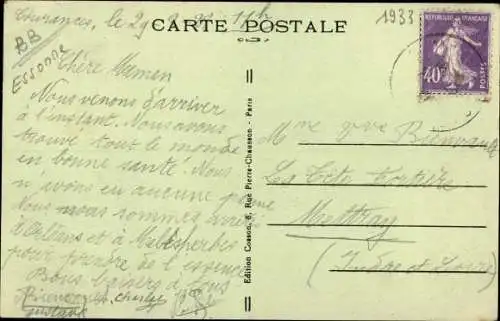 Courances, le 29 8 33 11h
CARTE POSTALE
1933
BB
Essonne
RÉPUBLIQUE FRANÇAISE
40c
POSTES
Chère Maman
Nous venons d'arriver
à l'instant. Nous avons
trouvé tout le monde
en bonne santé. Nous
n'avons eu aucune panne
Nous nous sommes arrêtés
à Orléans et à Malesherbes
pour prendre de l'essence
Bons baisers à tous
Gustave
Edition Cosson, 8, Rue Pierre-Chausson - Paris
Mme Vve
La
Mettray
(Indre et Loire)